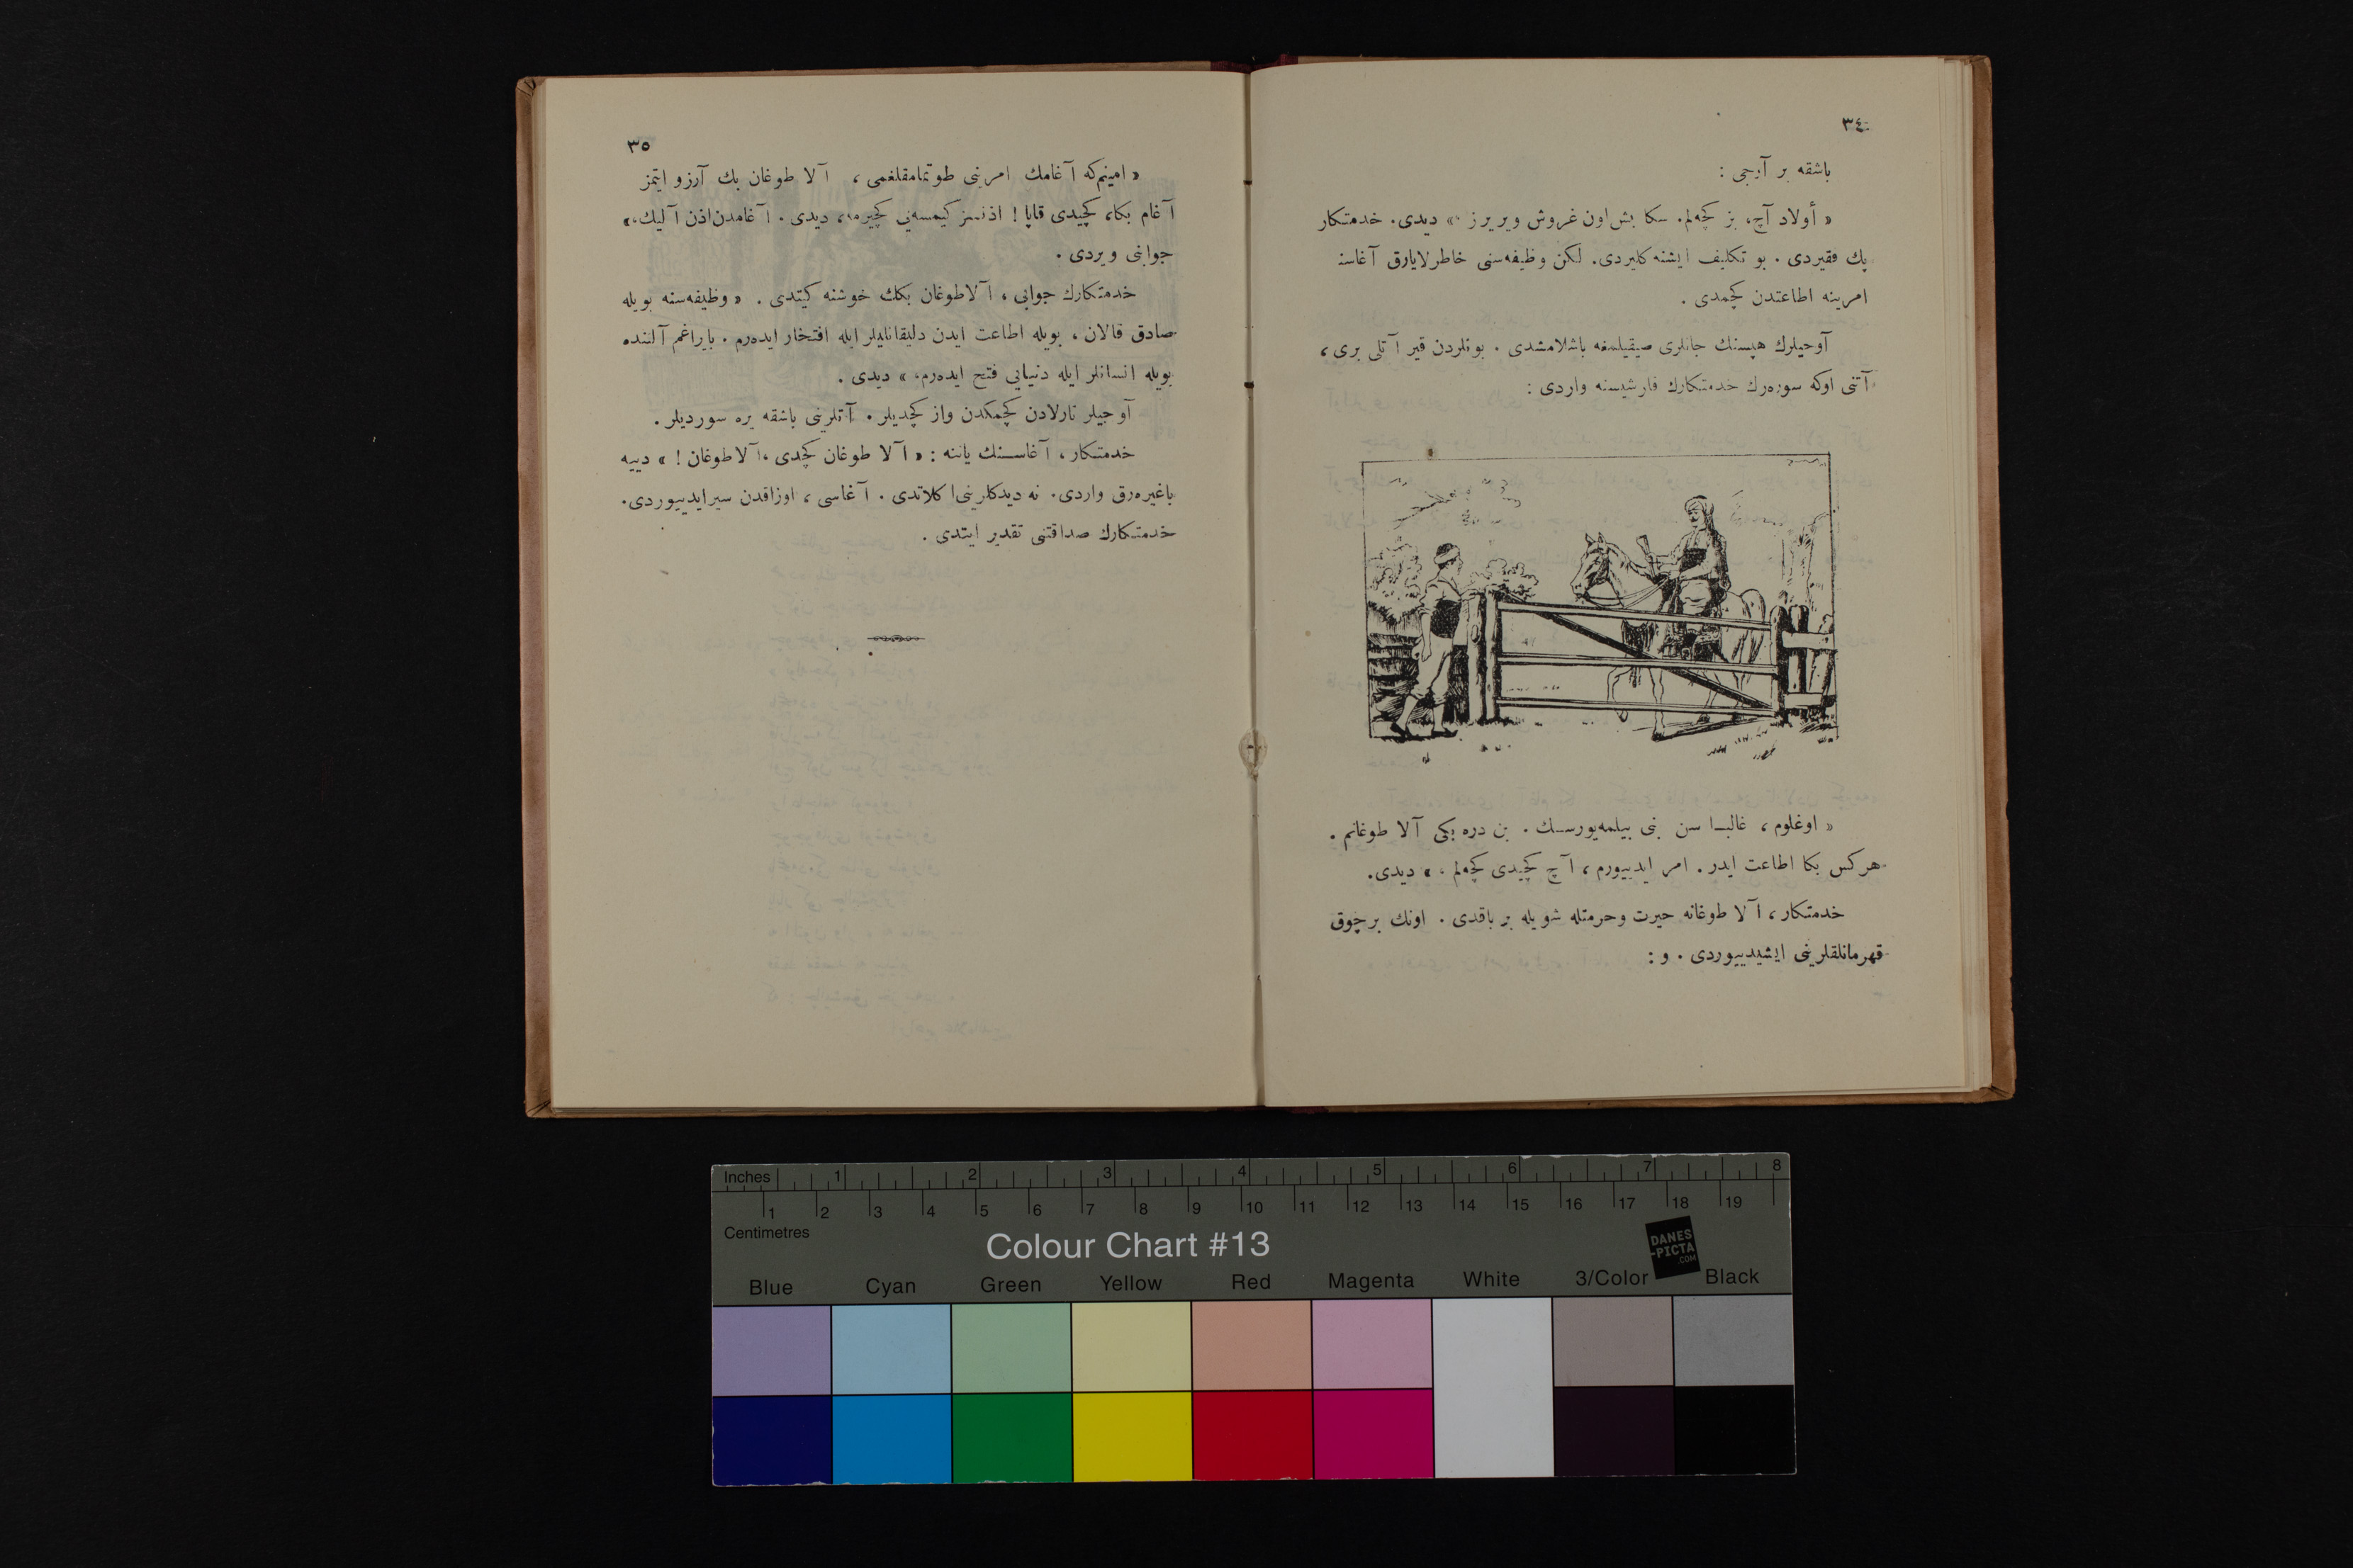 ٣٤
باشقه بر آوجی :
« أولاد آچ، بز كچه‌لم. سكا بش اون غروش ويريرز .» ديدی. خدمتكار
پك فقيردی . بو تكليف ايشنه كليردی. لكن وظيفه‌سنی خاطرلايارق آغاسنـ
امرينه اطاعتدن كچمدی .
آوجيلرك هپسنك جانلری صيقيلمغه باشلامشدی . بونلردن قير آتلی بری ،
آتنی اوكه سوره‌رك خدمتكارك قارشيسنه واردی :
« اوغلوم ، غالبا سن بنی بيلمه‌يورسك . بن دره بكی آلا طوغانم .
هركس بكا اطاعت ايدر . امر ايدييورم ، آچ كچيدی كچه‌لم . » ديدی.
خدمتكار ، آلا طوغانه حيرت وحرمتله شويله بر باقدی . اونك برچوق
قهرمانلقلرينی ايشيدييوردی . و :
٣٥
« امينم‌كه آغامك امرينی طوتمامقلغمی ، آلا طوغان بك آرزو ايتمز
آغام بكا، كچيدی قاپا ! اذنسز كيمسه‌يی كچيرمه، ديدی . آغامدن اذن آليك.»
جوابنی ويردی .
خدمتكارك جوابی ، آلاطوغان بكك خوشنه كيتدی . « وظيفه‌سنه بويله
صادق قالان ، بويله اطاعت ايدن دليقانليلر ايله افتخار ايده‌رم . بايراغم آلتنده
بويله انسانلر ايله دنيايی فتح ايده‌رم. » ديدی .
آوجيلر تارلادن كچمكدن واز كچديلر . آتلرينی باشقه يره سورديلر .
خدمتكار ، آغاسنك ياننه : « آلا طوغان كچدی ،آلاطوغان ! » دييه
باغيره‌رق واردی. نه ديدكلرينی اكلاتدی . آغاسی ، اوزاقدن سيرايدييوردی.
خدمتكارك صداقتنی تقدير ايتدی .
Inches 1 2 3 4 5 6 7 8
1 2 3 4 5 6 7 8 9 10 11 12 13 14 15 16 17 18 19
Centimetres
Colour Chart #13
DANES
-PICTA
.COM
Blue Cyan Green Yellow Red Magenta White 3/Color Black